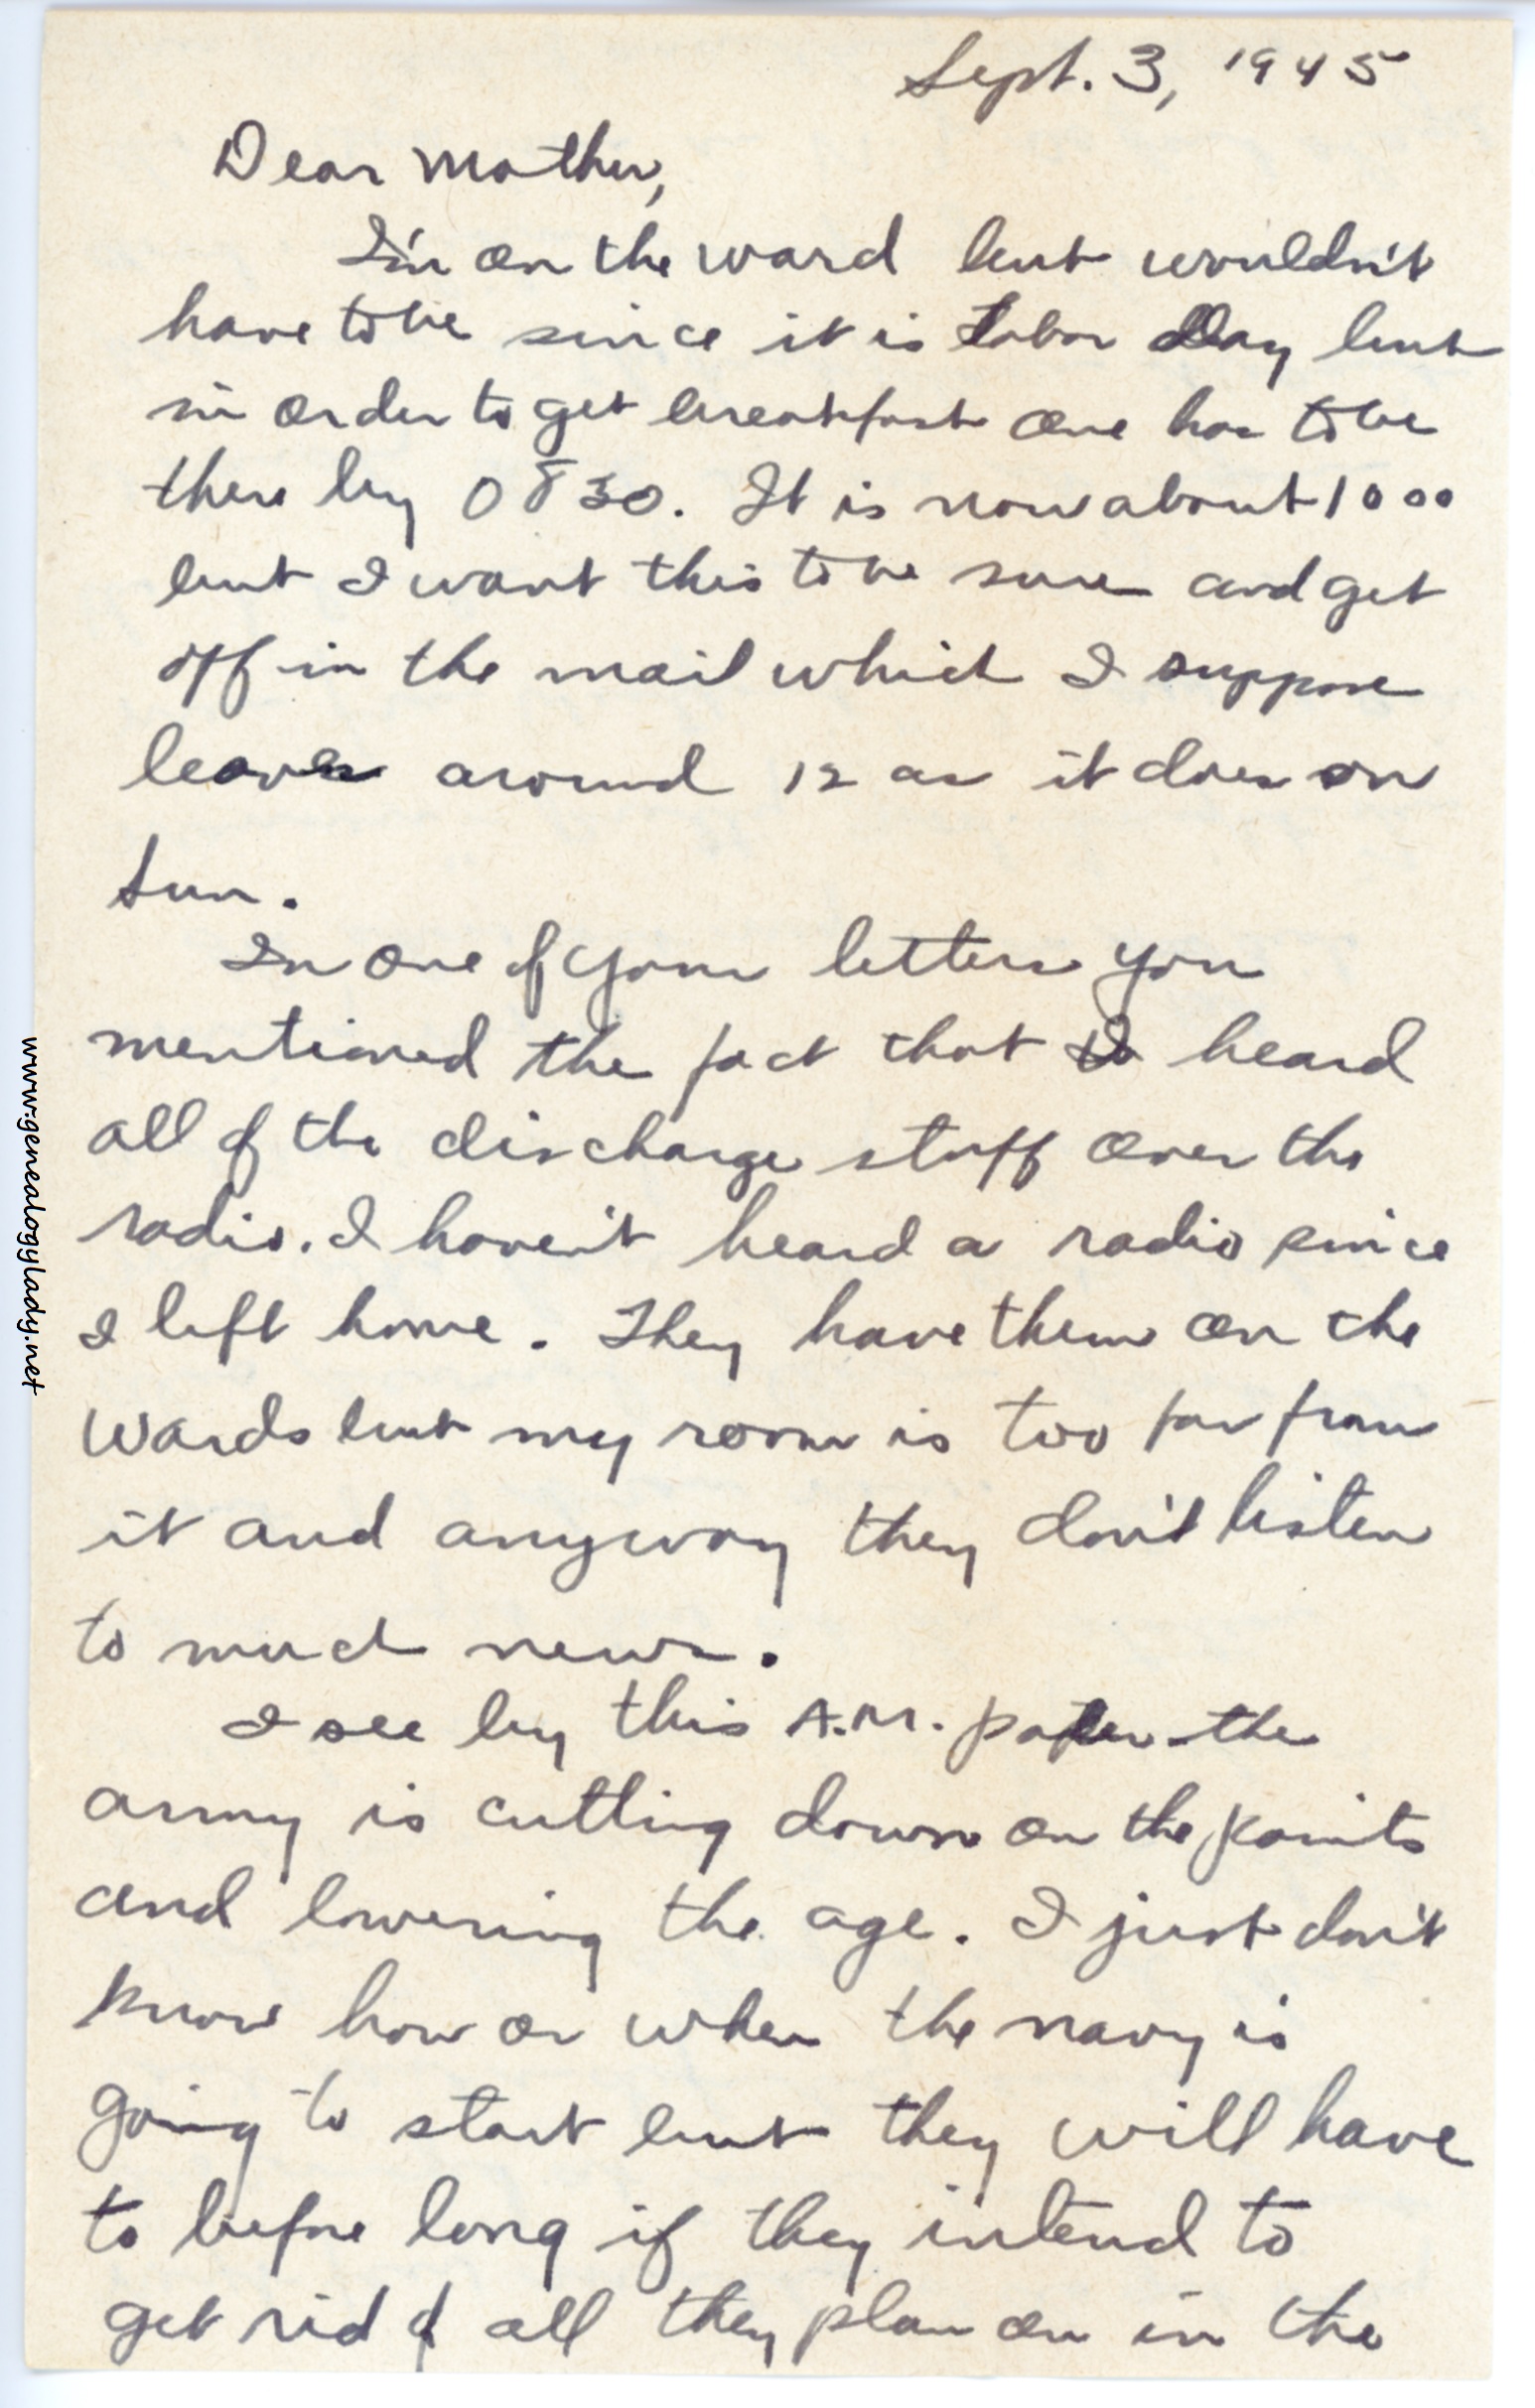 Sept. 3, 1945
Dear Mother,
I'm on the ward but wouldn't
have to be since it is Labor Day but
in order to get breakfast one has to be
there by 0830. It is now about 1000
but I want this to be sure and get
off in the mail which I suppose
leaves around 12 as it does on
Sun.
In one of your letters you
mentioned the fact that I heard
all of the discharge stuff over the
radio. I haven't heard a radio since
I left home. They have them on the
wards but my room is too far from
it and anyway they don't listen
to much news.
I see by this A.M. paper the
army is cutting down on the points
and lowering the age. I just don't
know how or when the navy is
going to start but they will have
to before long if they intend to
get rid of all they plan on in the
www.genealogylady.net